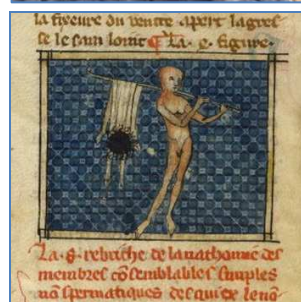 la du ventre apert la gres
se le ¶ La figure.
La .8. rebriche de lanathomie des
membres cõsemblables simples
nõ spermatiques desquiex le nõ